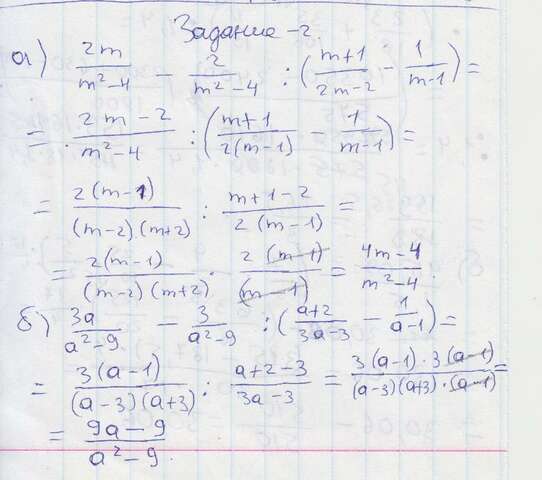 Задание-2.
а) \frac{2m}{m²-4} - \frac{2}{m²-4} : (\frac{m+1}{2m-2} - \frac{1}{m-1}) =
= \frac{2m-2}{m²-4} : (\frac{m+1}{2(m-1)} - \frac{1}{m-1}) =
= \frac{2(m-1)}{(m-2)·(m+2)} : \frac{m+1-2}{2(m-1)} =
= \frac{2(m-1)}{(m-2)(m+2)} · \frac{2(m-1)}{(m-1)} = \frac{4m-4}{m²-4}.
б) \frac{3a}{a²-9} - \frac{3}{a²-9} : (\frac{a+2}{3a-3} - \frac{1}{a-1}) =
= \frac{3(a-1)}{(a-3)(a+3)} : \frac{a+2-3}{3a-3} = \frac{3(a-1)·3(a-1)}{(a-3)(a+3)·(a-1)} =
= \frac{9a-9}{a²-9}.